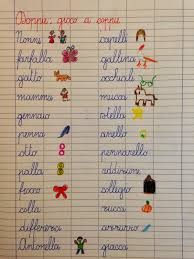 Doppie: gioco a coppie
Nonni capelli
farfalla gallina
gatto occhiali
mamma mucca
gennaio stella
penna anello
otto pennarello
palla addizione
fiocco collegio
colla zucca
azzurro
Antonella giacca